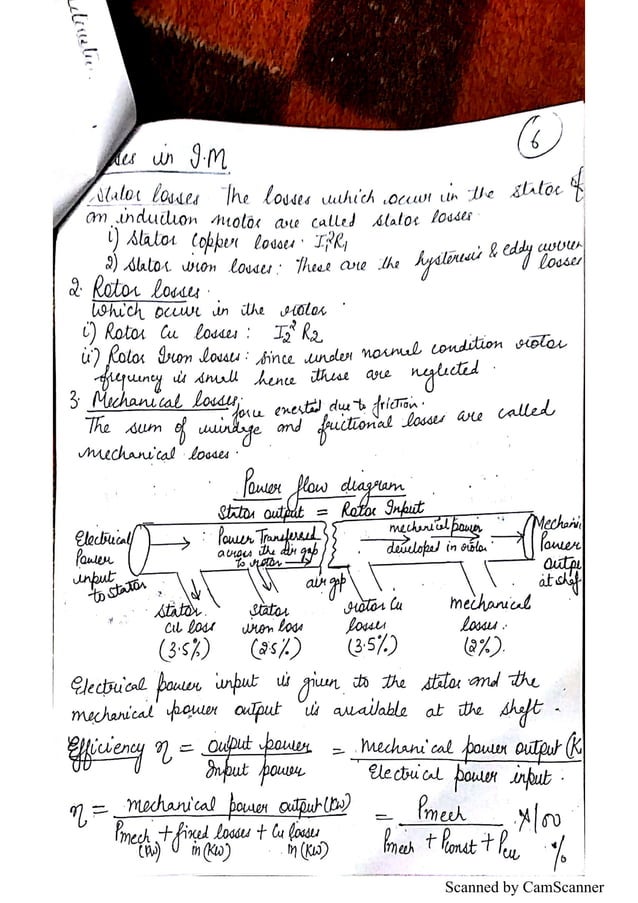 6
ses in I.M.
Stator losses The losses which occur in the stator of
an induction motor are called stator losses.
i) Stator Copper losses. I₁²R₁
2) Stator iron losses: These are the hysteresis & eddy curren
losses
2. Rotor losses.
Which occur in the rotor.
i) Rotor Cu losses: I₂² R₂
ii) Rotor Iron losses: since under normal condition rotor
frequency is small hence these are neglected.
3. Mechanical losses,
force exerted due to friction.
The sum of windage and frictional losses are called
mechanical losses.
Power flow diagram
Stator output = Rotor Input
Electrical
Power
input
to stator
Power Transfered
across the air gap
to rotor
air gap
mechanical power
developed in rotor
Mechani
Power
Outpu
at shaf
Stator
Cu loss
(3.5%)
Stator
iron loss
(2.5%)
rotor Cu
losses
(3.5%)
mechanical
losses:
(2%).
Electrical power input is given to the stator and the
mechanical power output is available at the shaft.
Efficiency η = output power / Input power = Mechanical power output (K / Electrical power input.
η = mechanical power output (KW) / Pmech (KW) + fixed losses in (KW) + Cu losses in (KW) = Pmech / Pmech + Pconst + Pcu × 100 %
Scanned by CamScanner